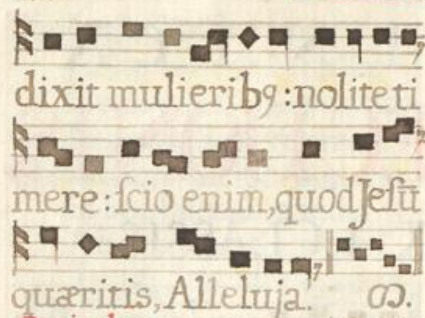 dixit mulierib9 : nolite ti
mere : ſcio enim, quod Jeſū
quæritis, Alleluja.